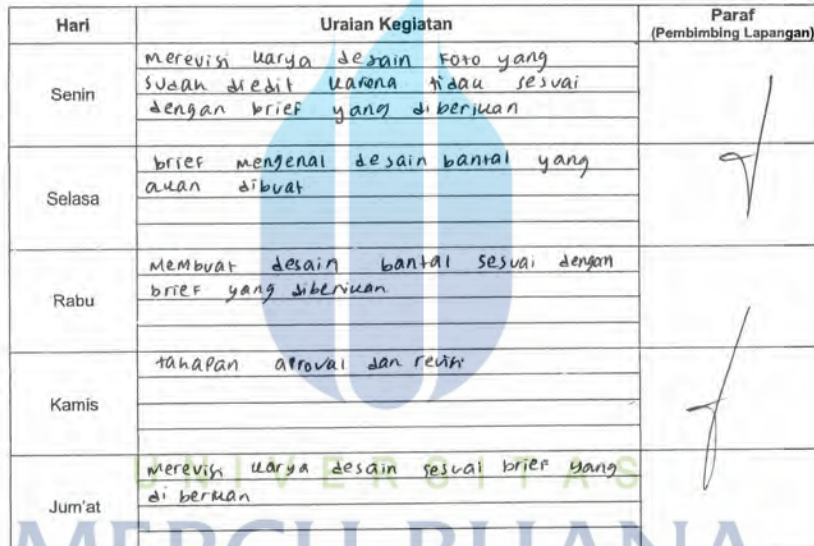 Hari Uraian Kegiatan Paraf
(Pembimbing Lapangan)
Senin
merevisi karya desain foto yang
sudah diedit karena tidak sesuai
dengan brief yang diberikan
Selasa
brief mengenai desain bantal yang
akan dibuat
Rabu
Membuat desain bantal sesuai dengan
brief yang diberikan
Kamis
tahapan aproval dan revisi
Jum'at
merevisi karya desain sesuai brief yang
diberikan
UNIVERSITAS
MERCU BUANA